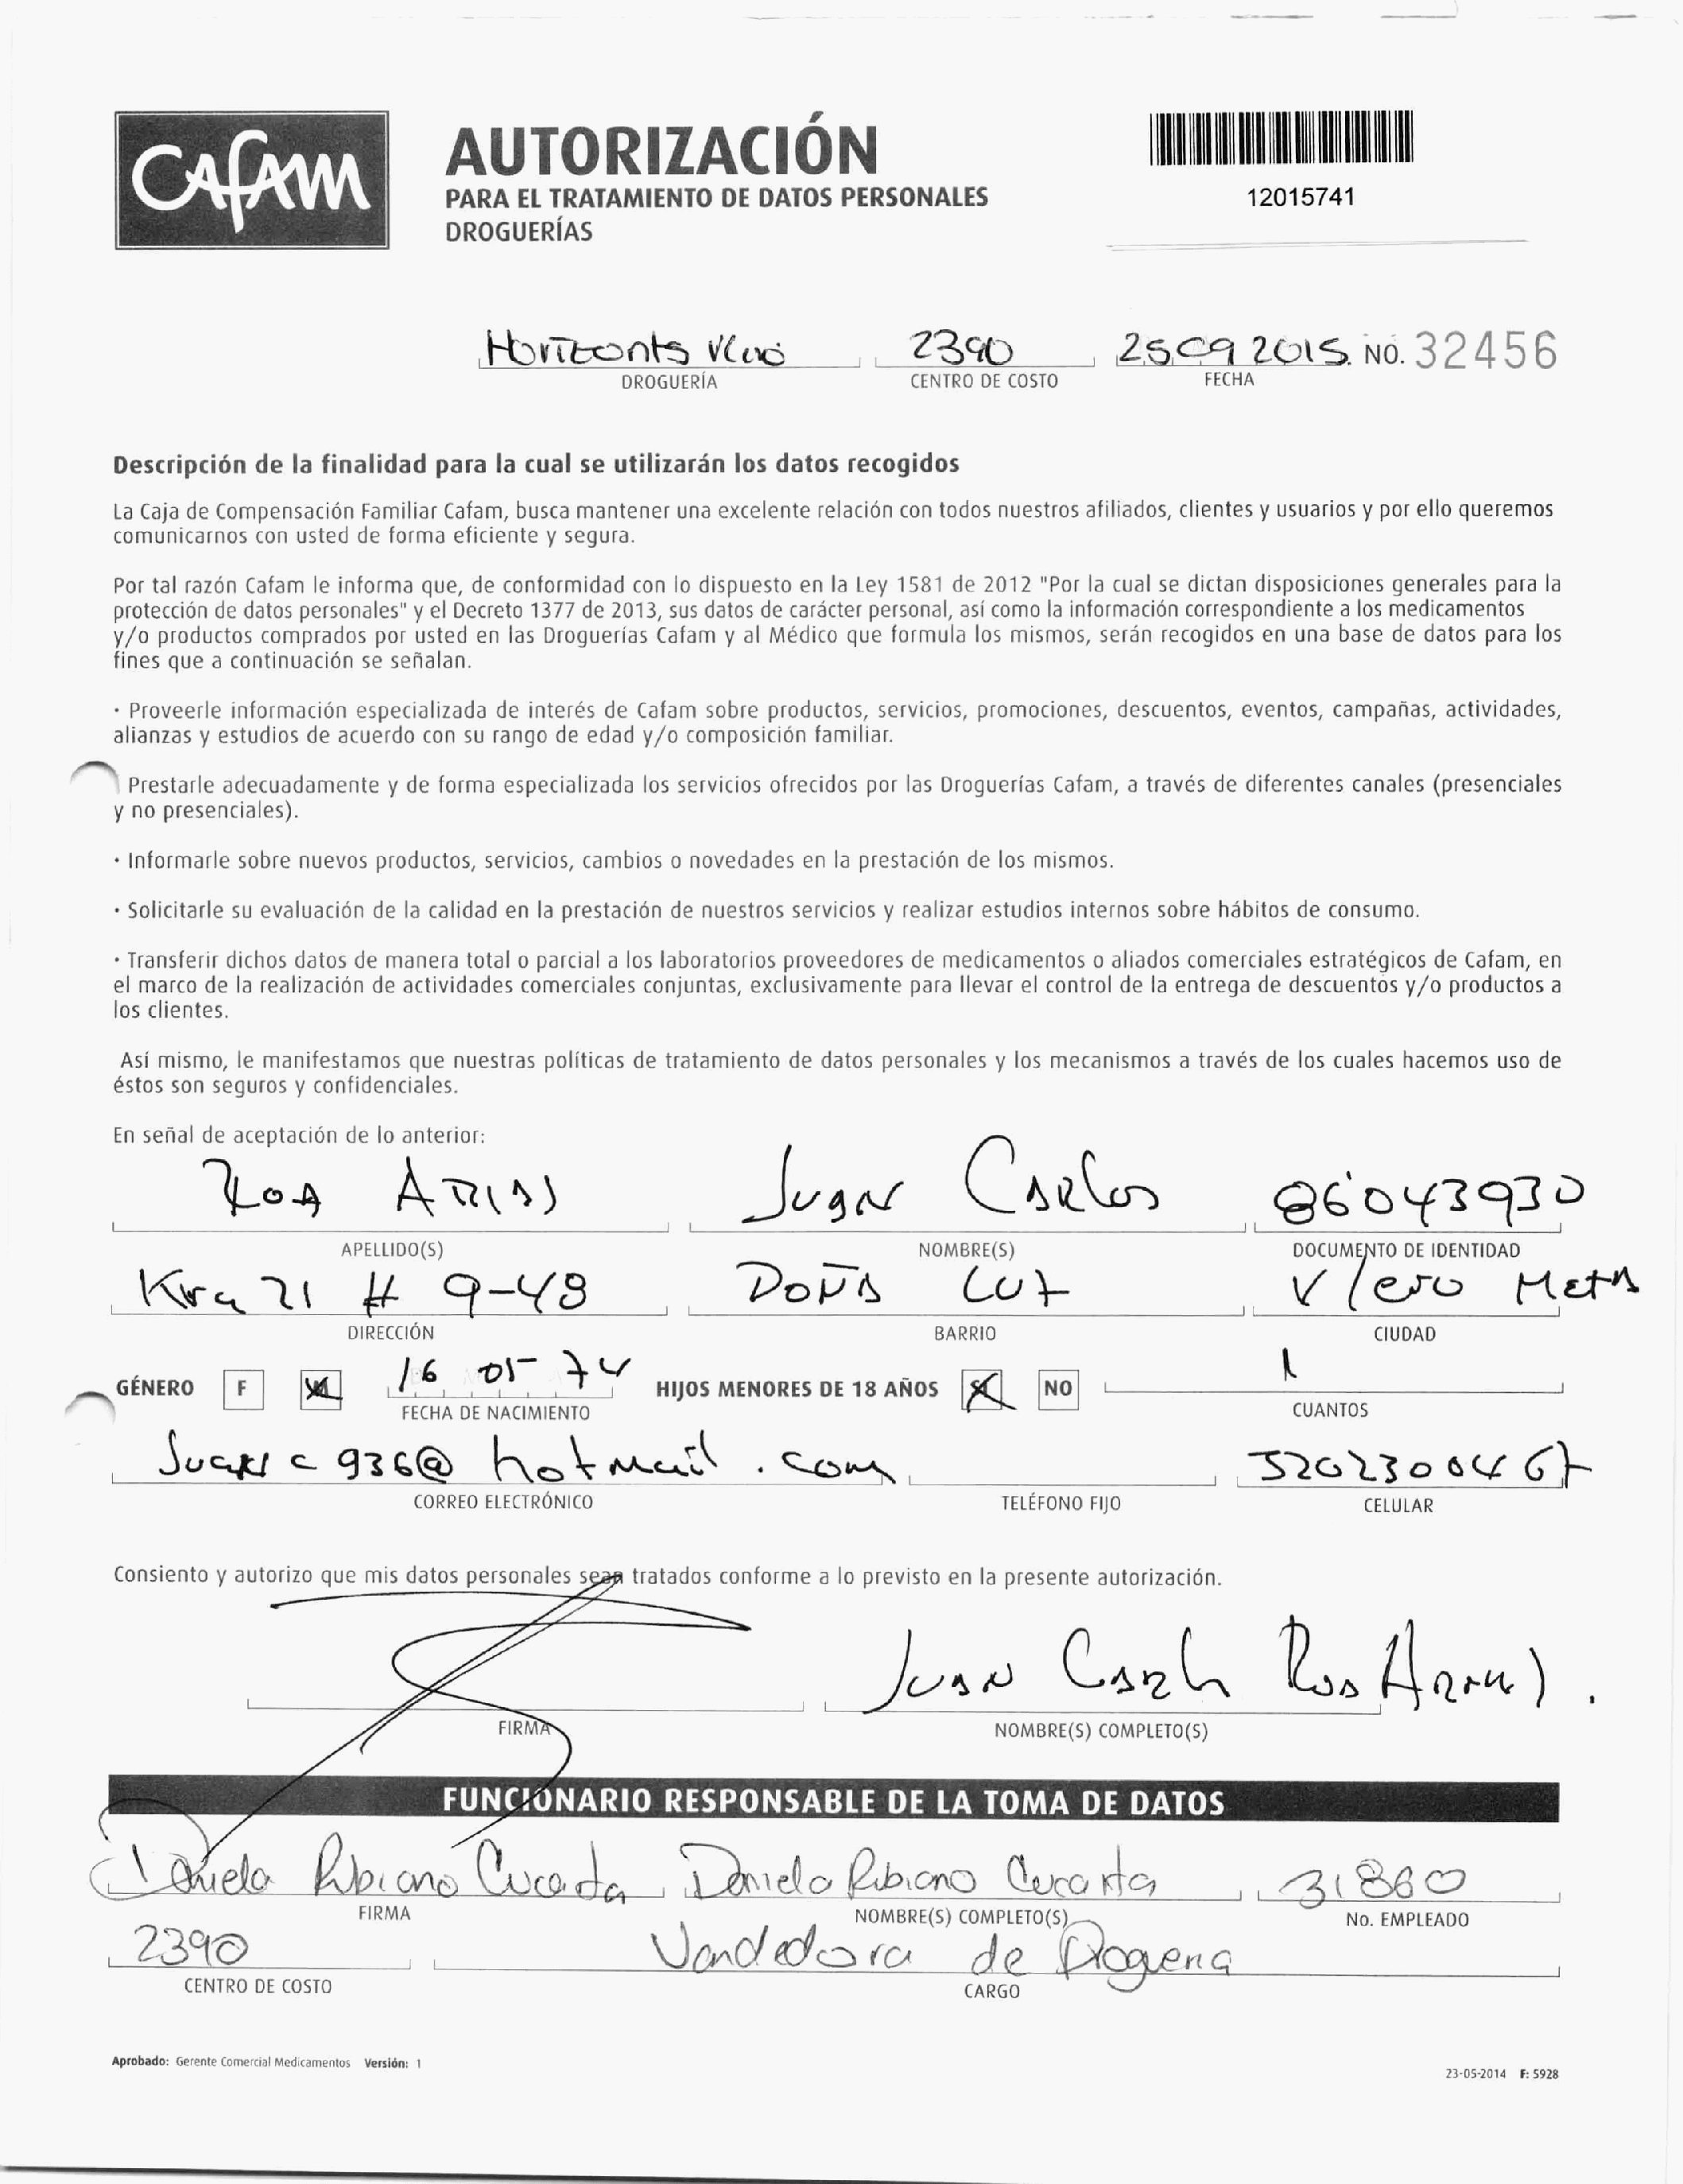 CAFAM
AUTORIZACIÓN
PARA EL TRATAMIENTO DE DATOS PERSONALES
DROGUERÍAS
12015741
Horizonts 2390 25 09 2015 NO. 32456
DROGUERÍA CENTRO DE COSTO FECHA
Descripción de la finalidad para la cual se utilizarán los datos recogidos
La Caja de Compensación Familiar Cafam, busca mantener una excelente relación con todos nuestros afiliados, clientes y usuarios y por ello queremos
comunicarnos con usted de forma eficiente y segura.
Por tal razón Cafam le informa que, de conformidad con lo dispuesto en la Ley 1581 de 2012 "Por la cual se dictan disposiciones generales para la
protección de datos personales" y el Decreto 1377 de 2013, sus datos de carácter personal, así como la información correspondiente a los medicamentos
y/o productos comprados por usted en las Droguerías Cafam y al Médico que formula los mismos, serán recogidos en una base de datos para los
fines que a continuación se señalan.
· Proveerle información especializada de interés de Cafam sobre productos, servicios, promociones, descuentos, eventos, campañas, actividades,
alianzas y estudios de acuerdo con su rango de edad y/o composición familiar.
Prestarle adecuadamente y de forma especializada los servicios ofrecidos por las Droguerías Cafam, a través de diferentes canales (presenciales
y no presenciales).
· Informarle sobre nuevos productos, servicios, cambios o novedades en la prestación de los mismos.
· Solicitarle su evaluación de la calidad en la prestación de nuestros servicios y realizar estudios internos sobre hábitos de consumo.
· Transferir dichos datos de manera total o parcial a los laboratorios proveedores de medicamentos o aliados comerciales estratégicos de Cafam, en
el marco de la realización de actividades comerciales conjuntas, exclusivamente para llevar el control de la entrega de descuentos y/o productos a
los clientes.
Así mismo, le manifestamos que nuestras políticas de tratamiento de datos personales y los mecanismos a través de los cuales hacemos uso de
éstos son seguros y confidenciales.
En señal de aceptación de lo anterior:
Roa Arias Juan Carlos 86043930
APELLIDO(S) NOMBRE(S) DOCUMENTO DE IDENTIDAD
Kra 21 # 9-48 Doña Luz V/cio Meta
DIRECCIÓN BARRIO CIUDAD
GÉNERO F M 16 05 74 HIJOS MENORES DE 18 AÑOS SI NO 1
FECHA DE NACIMIENTO CUANTOS
Juanc936@hotmail.com 3202300467
CORREO ELECTRÓNICO TELÉFONO FIJO CELULAR
Consiento y autorizo que mis datos personales sean tratados conforme a lo previsto en la presente autorización.
Juan Carlos Roa Arias.
FIRMA NOMBRE(S) COMPLETO(S)
FUNCIONARIO RESPONSABLE DE LA TOMA DE DATOS
Daniela Rubiano Cucaita Daniela Rubiano Cucaita 31860
FIRMA NOMBRE(S) COMPLETO(S) No. EMPLEADO
2390 Vendedora de Drogeria
CENTRO DE COSTO CARGO
Aprobado: Gerente Comercial Medicamentos Versión: 1
23-05-2014 F: 5928